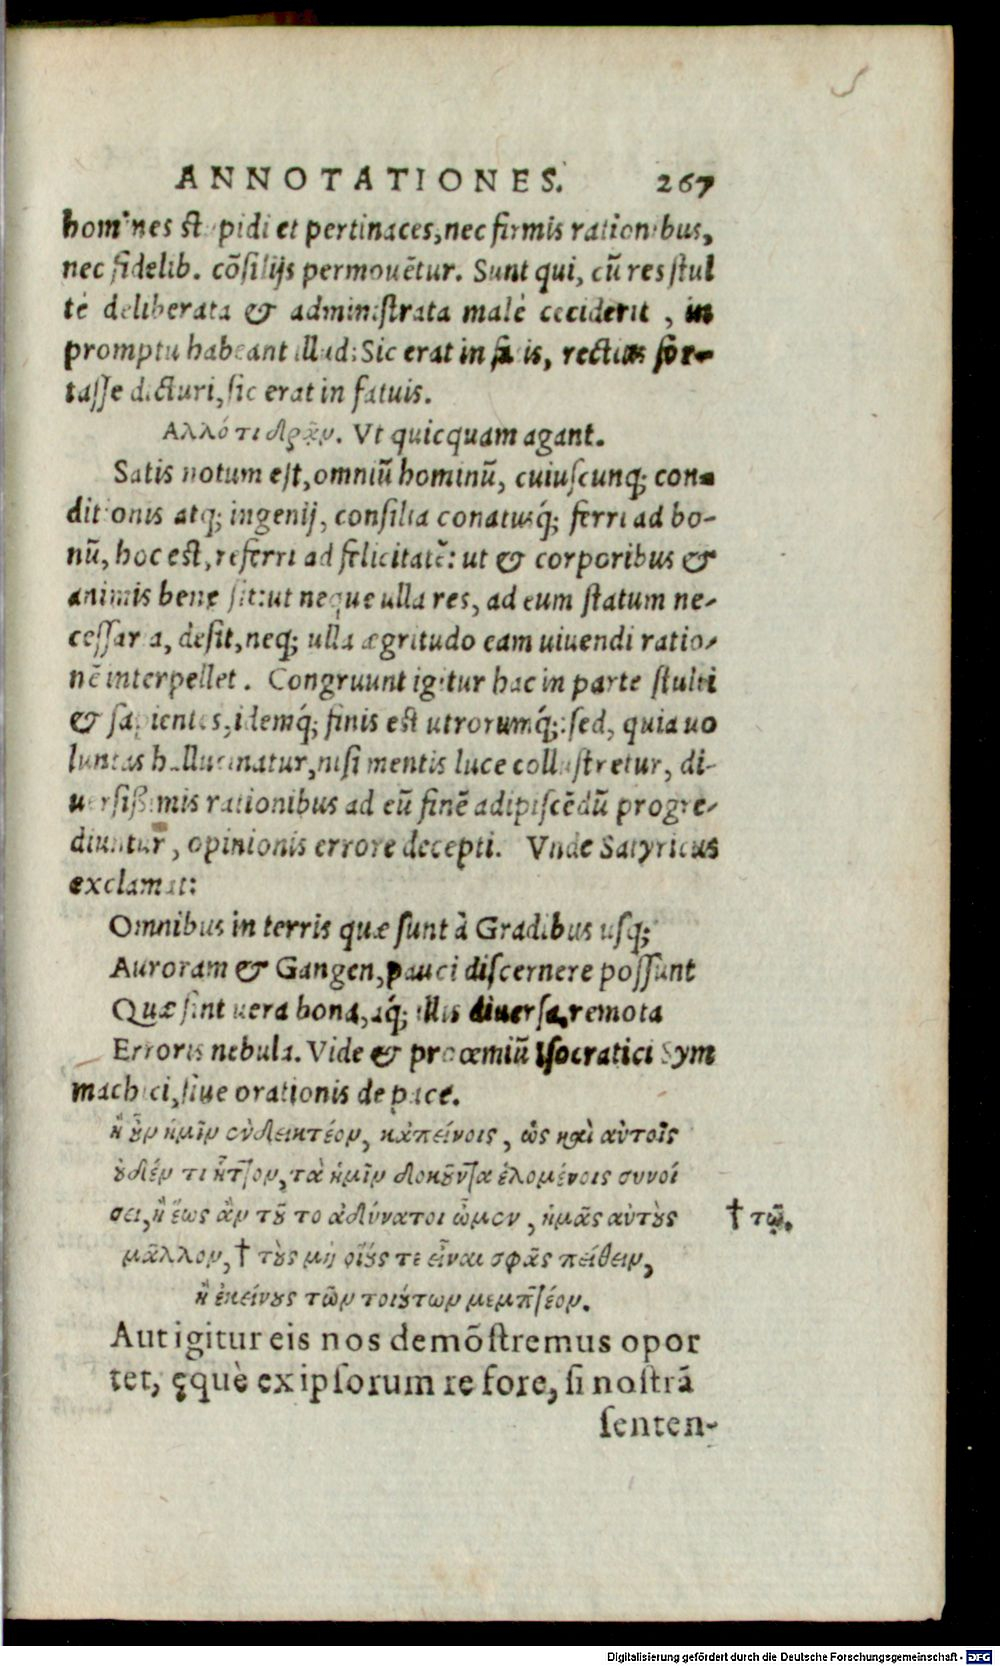 ANNOTATIONES. 267
homines stupidi et pertinaces, nec firmis rationibus,
nec fidelib. cōsilijs permouētur. Sunt qui, cū res stul
tè deliberata & administrata malè ceciderit, in
promptu habeant illud: Sic erat in fatis, rectius for-
tasse dicturi, sic erat in fatuis.
Αλλό τι δρᾶν. Vt quicquam agant.
Satis notum est, omniū hominū, cuiuscunq; con-
ditionis atq; ingenij, consilia conatusq́; ferri ad bo-
nū, hoc est, referri ad felicitatē: ut & corporibus &
animis bene sit: ut neque ulla res, ad eum statum ne-
cessaria, desit, neq; ulla ægritudo eam uiuendi ratio-
nē interpellet. Congruunt igitur hac in parte stulti
& sapientes, idemq́; finis est utrorumq́;: sed, quia uo
luntas hallucinatur, nisi mentis luce collustretur, di-
uersißimis rationibus ad eū finē adipiscēdū progre-
diuntur, opinionis errore decepti. Vnde Satyricus
exclamat:
Omnibus in terris quæ sunt à Gradibus usq;
Auroram & Gangen, pauci discernere possunt
Quæ sint uera bona, atq́; illis diuersa, remota
Erroris nebula. Vide & proœmiū Isocratici Sym
machici, siue orationis de pace.
ἢ οὖν ἡμῖν οὐδεικτέον, κἀπείνοις, ὡς καὶ αὐτοῖς
οὐδέν τι ἧττον, τὰ ἡμῖν δοκοῦντα ἑλομένοις συνοί
σει, ἢ ἕως ἂν τοῦ το ἀδύνατοι ὦμεν, ἡμᾶς αὐτοὺς † τῷ.
μᾶλλον, † τοὺς μὴ οἵους τε εἶναι σφᾶς πείθειν,
ἢ ἐκείνους τῶν τοιούτων μεμπτέον.
Aut igitur eis nos demōstremus opor
tet, ęquè ex ipsorum re fore, si nostrā
senten-
Digitalisierung gefördert durch die Deutsche Forschungsgemeinschaft - DFG